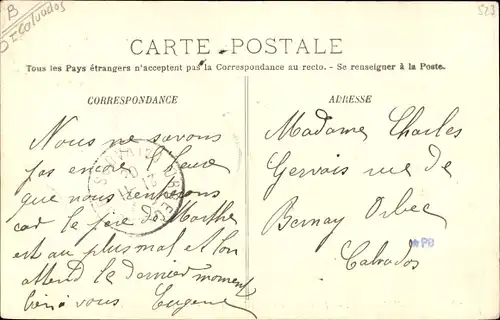 B
Calvados
523
CARTE POSTALE
Tous les Pays étrangers n'acceptent pas la Correspondance au recto. - Se renseigner à la Poste.
CORRESPONDANCE
Nous ne savons
pas encore l'heure
que nous rentrerons
car le père de Marthe
est au plus mal et l'on
attend le dernier moment
bien à vous. Eugene
ADRESSE
Madame Charles
Gervais rue de
Bernay Orbec
Calvados
PB